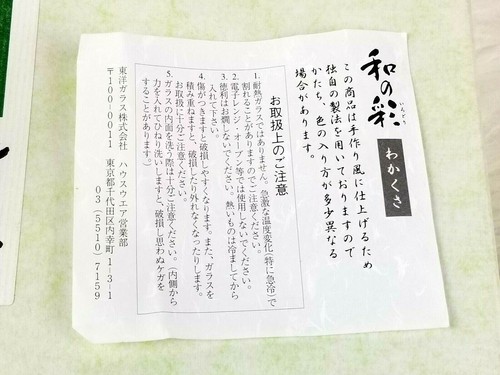 和の彩
いんどう
わかくさ
この商品は手作り風に仕上げるため
独自の製法を用いておりますので
かたち、色の入り方が多少異なる
場合があります。
お取扱上のご注意
1. 耐熱ガラスではありません。急激な温度変化(特に急冷)で
割れることがありますのでご注意ください。
2. 電子レンジ・オーブン等では使用しないでください。
3. 徳利はお燗しないでください。熱いものは冷ましてから
入れて下さい。
4. 傷がつきますと破損しやすくなります。また、ガラスを
積み重ねますと、破損したり外れなくなったりします。
お取扱に十分ご注意ください。
5. ガラスの内面を洗う際は十分ご注意ください。(内側から
力を入れてひねり洗いしますと、破損し思わぬケガを
することがあります。)
東洋ガラス株式会社 ハウスウエア営業部
〒100-0011 東京都千代田区内幸町1-3-1
03(5510)7159